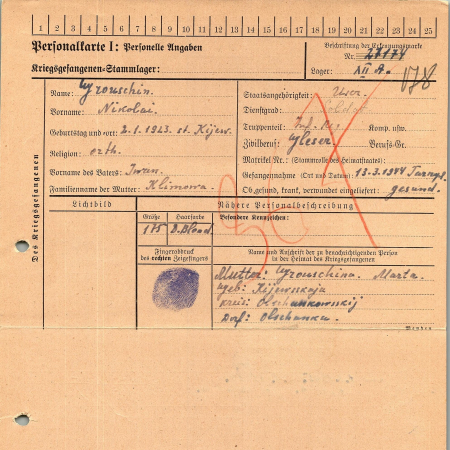 1 2 3 4 5 6 7 8 9 10 11 12 13 14 15 16 17 18 19 20 21 22 23 24 25
Personalkarte I: Personelle Angaben
Kriegsgefangenen-Stammlager:
Beschriftung der Erkennungsmarke
Nr. 28174
Lager: XII A.
Des Kriegsgefangenen
Name: Grouschin.
Vorname: Nikolai.
Geburtstag und -ort: 2.1.1923. st. Kijew.
Religion: orth.
Vorname des Vaters: Iwan.
Familienname der Mutter: Klimowa.
Staatsangehörigkeit:
Dienstgrad: Soldat
Truppenteil: Inf. Reg. Komp. usw.
Zivilberuf: Gleser Berufs-Gr.
Matrikel Nr. (Stammrolle des Heimatstaates):
Gefangennahme (Ort und Datum): 13.3.1944
Ob gesund, krank, verwundet eingeliefert: gesund.
Lichtbild
Nähere Personalbeschreibung
Größe Haarfarbe Besondere Kennzeichen:
175 D.Blond
Fingerabdruck
des rechten Zeigefingers
Name und Anschrift der zu benachrichtigenden Person
in der Heimat des Kriegsgefangenen
Mutter: Grouschina. Marta.
geb: Kijewskaja
kreis: Olschankowskij
Dorf: Olschanka.
Wenden